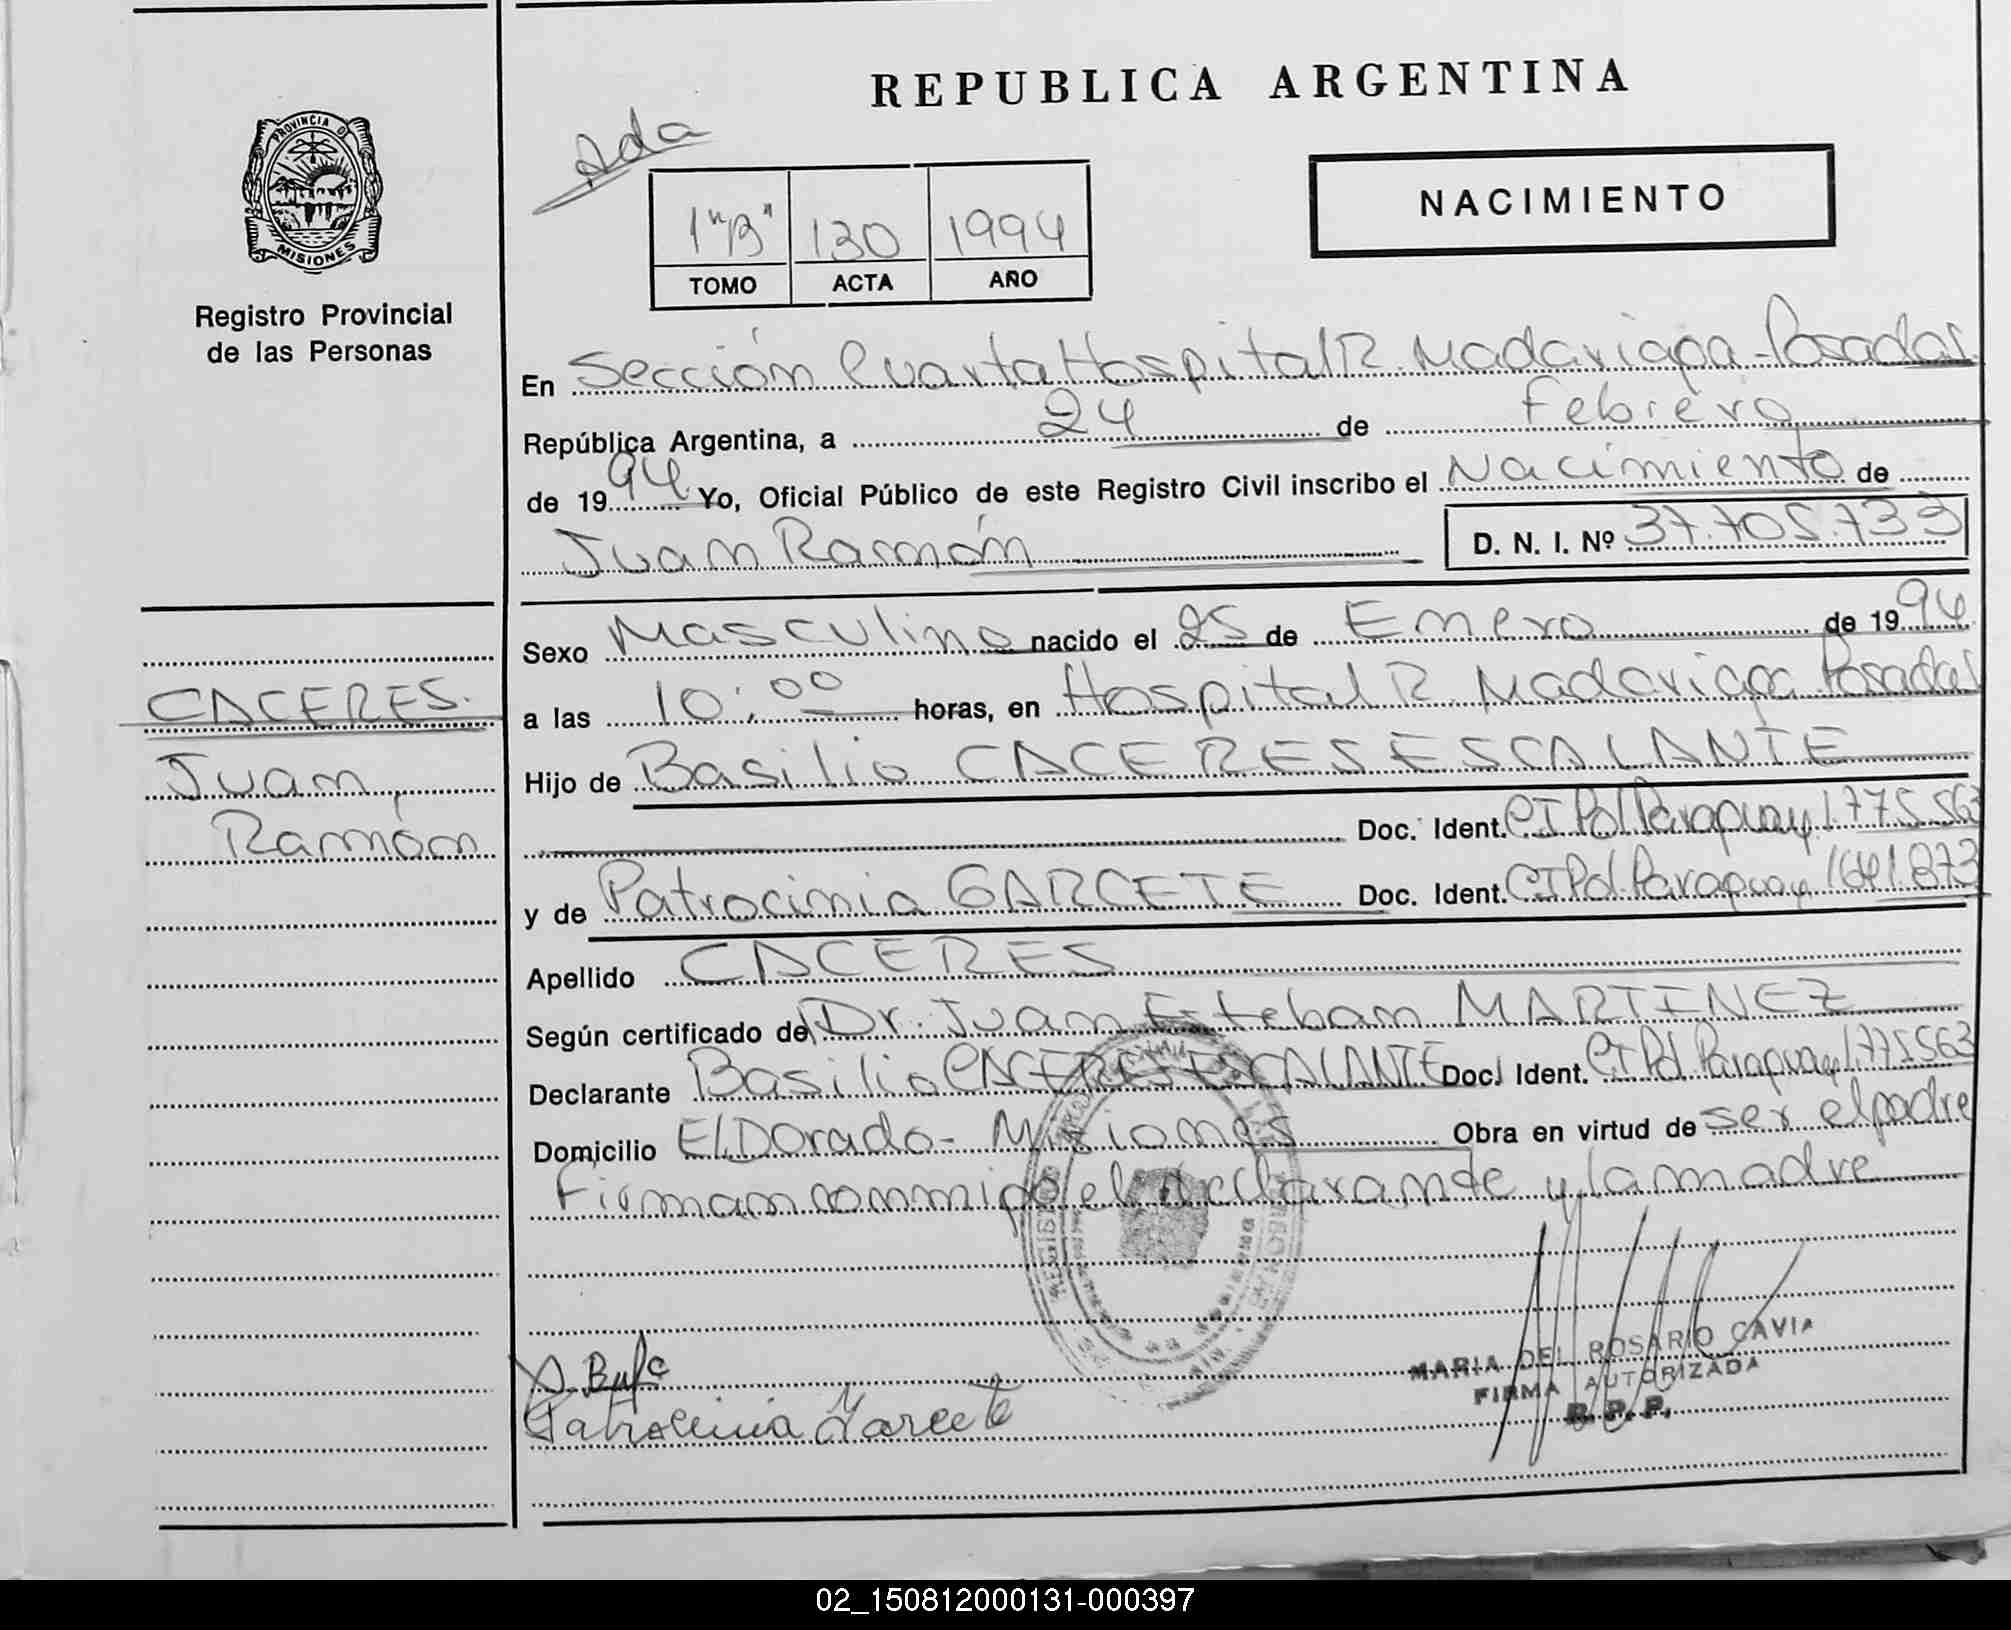 REPUBLICA ARGENTINA
PROVINCIA D
MISIONES
Registro Provincial
de las Personas
Ada
1 "B" 130 1994
TOMO ACTA AÑO
NACIMIENTO
En Sección Cuarta Hospital R. Madariaga - Posadas
República Argentina, a 24 de Febrero
de 1994 Yo, Oficial Público de este Registro Civil inscribo el Nacimiento de
Juan Ramón D. N. I. Nº 37.705.733
Sexo Masculino nacido el 25 de Enero de 1994
a las 10:00 horas, en Hospital R. Madariaga Posadas
Hijo de Basilio CACERES ESCALANTE
Doc. Ident. CI Pol Paraguay 1.775.563
y de Patrocinia GARCETE Doc. Ident. CI Pol. Paraguay 1641.873
Apellido CACERES
Según certificado de Dr. Juan Esteban MARTINEZ
Declarante Basilio CACERES ESCALANTE Doc. Ident. CI Pol Paraguay 1.775563
Domicilio El Dorado - Misiones Obra en virtud de ser el padre
Firman conmigo el declarante y la madre
CACERES.
Juan,
Ramón
Patrocinia Garcete
MARIA DEL ROSARIO CAVIA
FIRMA AUTORIZADA
R. P. P.
02_150812000131-000397